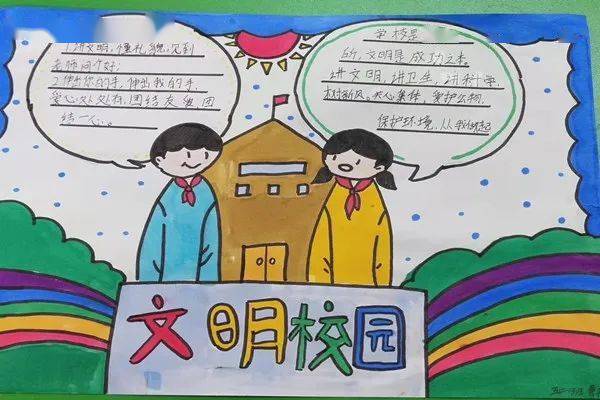 讲文明,懂礼貌,见到
老师问个好.
伸出你的手,伸出我的手.
爱心处处有,团结友爱团
结一心.
学校是
所,文明是成功之本.
讲文明,讲卫生,讲科学
树新风,关心集体,爱护公物.
保护环境,从我做起
文明校园